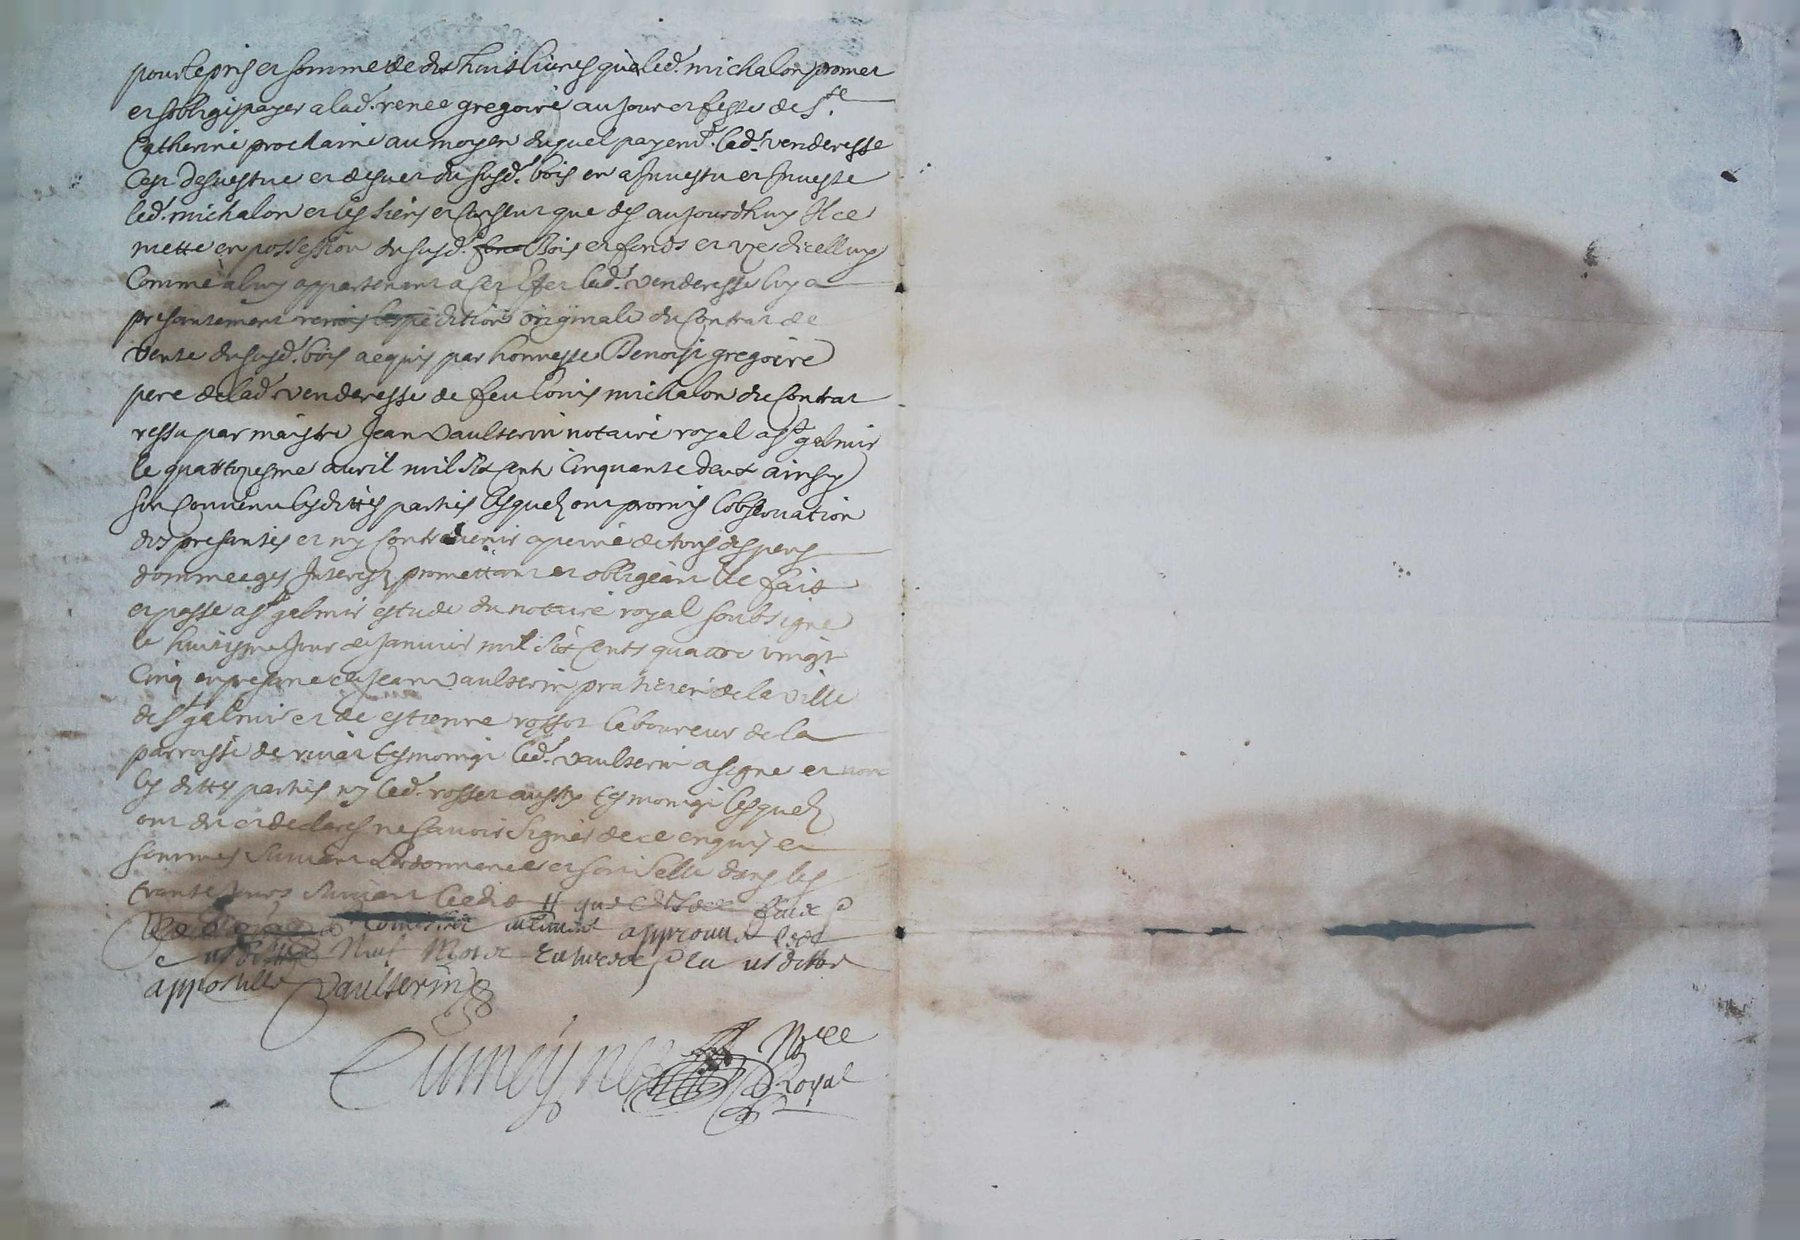 pour le pris et somme de dix huit livres que led. michalon promet
et soblige payer a lad. renee gregoire au jour et feste de Ste
Catherine prochaine au moyen duquel payemt. lad. venderesse
cest desvestue et desvet du susd. bois en a Jnvestu et Jnveste
led. michalon et les siens et consent que des aujourdhuy Il ce
mette en possession du susd. bois et fonds et dicelluy
Comme a luy appartenant a cet Effet lad. venderesse luy a
presantement remis lexpedition originale du Contrat de
Vente du susd. bois acquis par honneste Benoist gregoire
pere de lad. venderesse de feu Louis michalon du Contrat
ressu par maistre Jean Vaulterin notaire royal a St galmir
le quattorzesme avril mil six cents Cinquante deux ainsy
son convenu lesdittes parties lesquels ont promis lobservation
des presantes et ny Contrevenir a peine de tous despens
dommeages Jnterestz promettant et obligeant &c fait
et passe a St galmir estude du notaire royal soubsigne
le huitiesme Jour de Janvier mil six Cents quattre vingt
Cinq en presance de Jean Vaulterin praticien de la ville
de St galmir et de estienne rosset laboureur de la
parroisse de tesmoings led. vaulterin a signe et non
les dittes parties ny led. rosset aussy tesmoings lesquels
ont dit et declares ne savoir signer de ce enquis et
sommes suivant Lordonnance et soit selle dans les
trante jours suivant Ledit
approuve
Neuf Motz
appostille Vaulterin
Nre
Royal